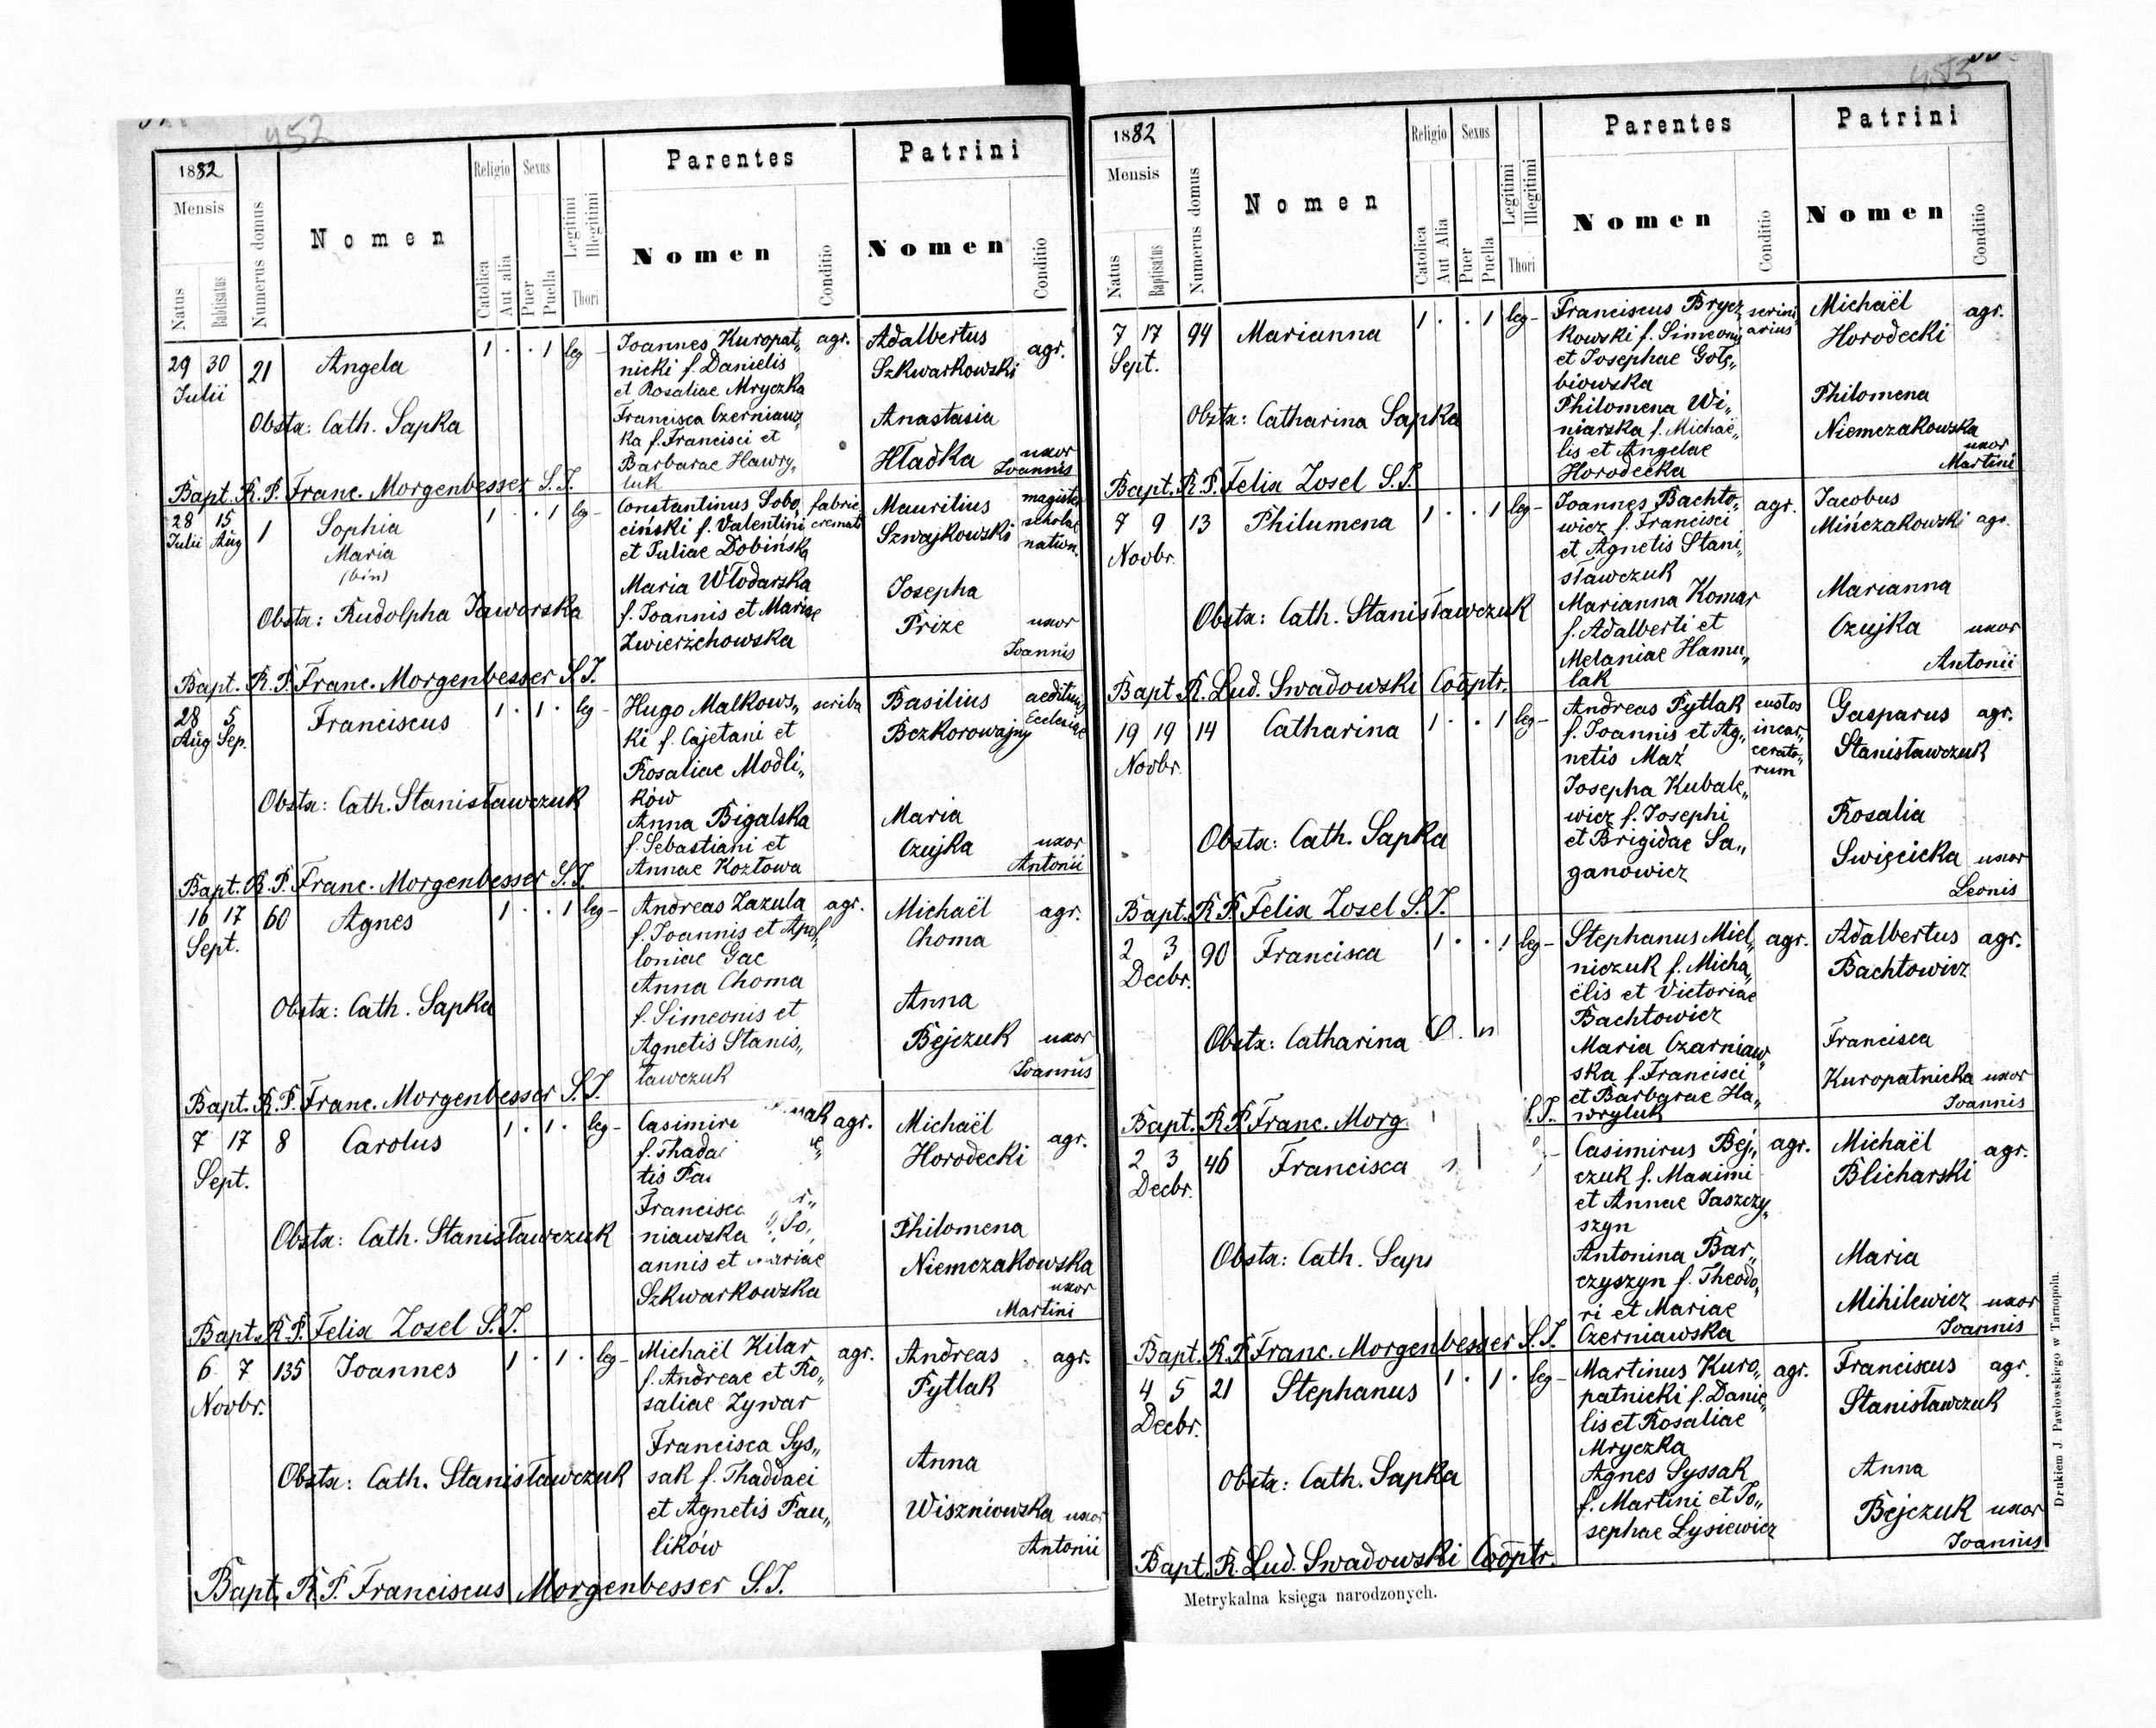 452
1882
Mensis
Natus
Babtisatus
Numerus domus
Nomen
Religio
Catolica
Aut alia
Sexus
Puer
Puella
Legitimi
Illegitimi
Thori
Parentes
Nomen
Conditio
Patrini
Nomen
Conditio
29 30
Julii
21
Angela
1 . . 1 leg-
Obstx: Cath. Sapka
Joannes Kuropat„
nicki f. Danielis
et Rosaliae Mryczka
Francisca Czerniaws„
ka f. Francisci et
Barbarae Hawry„
luk
agr.
Adalbertus
Szkwarkowski
agr.
Anastasia
Hładka
uxor
Joannis
Bapt. R. P. Franc. Morgenbesser S.J.
28 15
Julii Aug
1
Sophia
Maria
(bin)
1 . . 1 leg-
Obstx: Rudolpha Jaworska
Constantinus Sobo„
ciński f. Valentini
et Juliae Dobińska
Maria Włodarska
f. Joannis et Mariae
Zwierżchowska
fabric
cremati
Mauritius
Szwajkowski
magister
scholae
nation.
Josepha
Prize
uxor
Joannis
Bapt. R. P. Franc. Morgenbesser S.J.
28 5
Aug Sep.
Franciscus
1 . 1 . leg-
Obstx: Cath. Stanisławczuk
Hugo Malkows„
ki f. Cajetani et
Rosaliae Modli„
ków
Anna Bigalska
f. Sebastiani et
Annae Kozłowa
scriba
Basilius
Bezkorowajny
aedituus
Ecclesiae
Maria
Czujka
uxor
Antonii
Bapt. R. P. Franc. Morgenbesser S.J.
16 17
Sept.
60
Agnes
1 . . 1 leg-
Obstx: Cath. Sapka
Andreas Zazula
f. Joannis et Apol„
loniae Gac
Anna Choma
f. Simeonis et
Agnetis Stanis„
ławczuk
agr.
Michaël
Choma
agr.
Anna
Bejczuk
uxor
Joannis
Bapt. R. P. Franc. Morgenbesser S.J.
7 17
Sept.
8
Carolus
1 . 1 . leg-
Obstx: Cath. Stanisławczuk
Casimir
f. Thada
tis Pau
Francisca
niawska f. Jo„
annis et Mariae
Szkwarkowska
agr.
Michaël
Horodecki
agr.
Philomena
Niemczakowska
uxor
Martini
Bapt. R. P. Felix Zosel S.J.
6 7
Novbr.
135
Joannes
1 . 1 . leg-
Obstx: Cath. Stanisławczuk
Michaël Kilar
f. Andreae et Ro„
saliae Zywar
Francisca Sys„
sak f. Thaddaei
et Agnetis Pau„
lików
agr.
Andreas
Pytlak
agr.
Anna
Wiszniowska
uxor
Antonii
Bapt. R. P. Franciscus Morgenbesser S.J.
453
1882
Mensis
Natus
Baptisatus
Numerus domus
Nomen
Religio
Catolica
Aut Alia
Sexus
Puer
Puella
Legitimi
Illegitimi
Thori
Parentes
Nomen
Conditio
Patrini
Nomen
Conditio
7 17
Sept.
94
Marianna
1 . . 1 leg-
Obstx: Catharina Sapka
Franciscus Brycz„
kowski f. Simeonis
et Josephae Gołę„
biowska
Philomena Wi„
niarska f. Michaë„
lis et Angelae
Horodecka
scrini
arius
Michaël
Horodecki
agr.
Philomena
Niemczakowska
uxor
Martini
Bapt. R. P. Felix Zosel S.J.
7 9
Novbr.
13
Philumena
1 . . 1 leg-
Obstx: Cath. Stanisławczuk
Joannes Bachto„
wicz f. Francisci
et Agnetis Stani„
sławczuk
Marianna Komar
f. Adalberti et
Melaniae Hamu„
lak
agr.
Jacobus
Mińczakowski
agr.
Marianna
Czujka
uxor
Antonii
Bapt. R. Lud. Swadowski Cooptr.
19 19
Novbr.
14
Catharina
1 . . 1 leg-
Obstx: Cath. Sapka
Andreas Pytlak
f. Joannis et Ag„
netis Maź
Josepha Kubale„
wicz f. Josephi
et Brigidae Sa„
ganowicz
custos
incar„
cerato„
rum
Gasparus
Stanisławczuk
agr.
Rosalia
Swięcicka
uxor
Leonis
Bapt. R. P. Felix Zosel S.J.
2 3
Decbr.
90
Francisca
1 . . 1 leg-
Obstx: Catharina
Stephanus Miel„
niczuk f. Micha„
ëlis et Victoriae
Bachtowicz
Maria Czarniaw„
ska f. Francisci
et Barbarae Ha„
wryluk
agr.
Adalbertus
Bachtowicz
agr.
Francisca
Kuropatnicka
uxor
Joannis
Bapt. R. P. Franc. Morg S.J.
2 3
Decbr.
46
Francisca
Obstx: Cath. Sap
Casimirus Bej„
czuk f. Maximi
et Annae Jaszczy„
szyn
Antonina Bar„
czyszyn f. Theodo„
ri et Mariae
Czerniawska
agr.
Michaël
Blicharski
agr.
Maria
Mihilewicz
uxor
Joannis
Bapt. R. P. Franc. Morgenbesser S.J.
4 5
Decbr.
21
Stephanus
1 . 1 . leg-
Obstx: Cath. Sapka
Martinus Kuro„
patnicki f. Danie„
lis et Rosaliae
Mryczka
Agnes Syssak
f. Martini et Jo„
sephae Lysiewicz
agr.
Franciscus
Stanisławczuk
agr.
Anna
Bejczuk
uxor
Joannis
Bapt. R. Lud. Swadowski Cooptr.
Metrykalna księga narodzonych.
Drukiem J. Pawłowskiego w Tarnopolu.